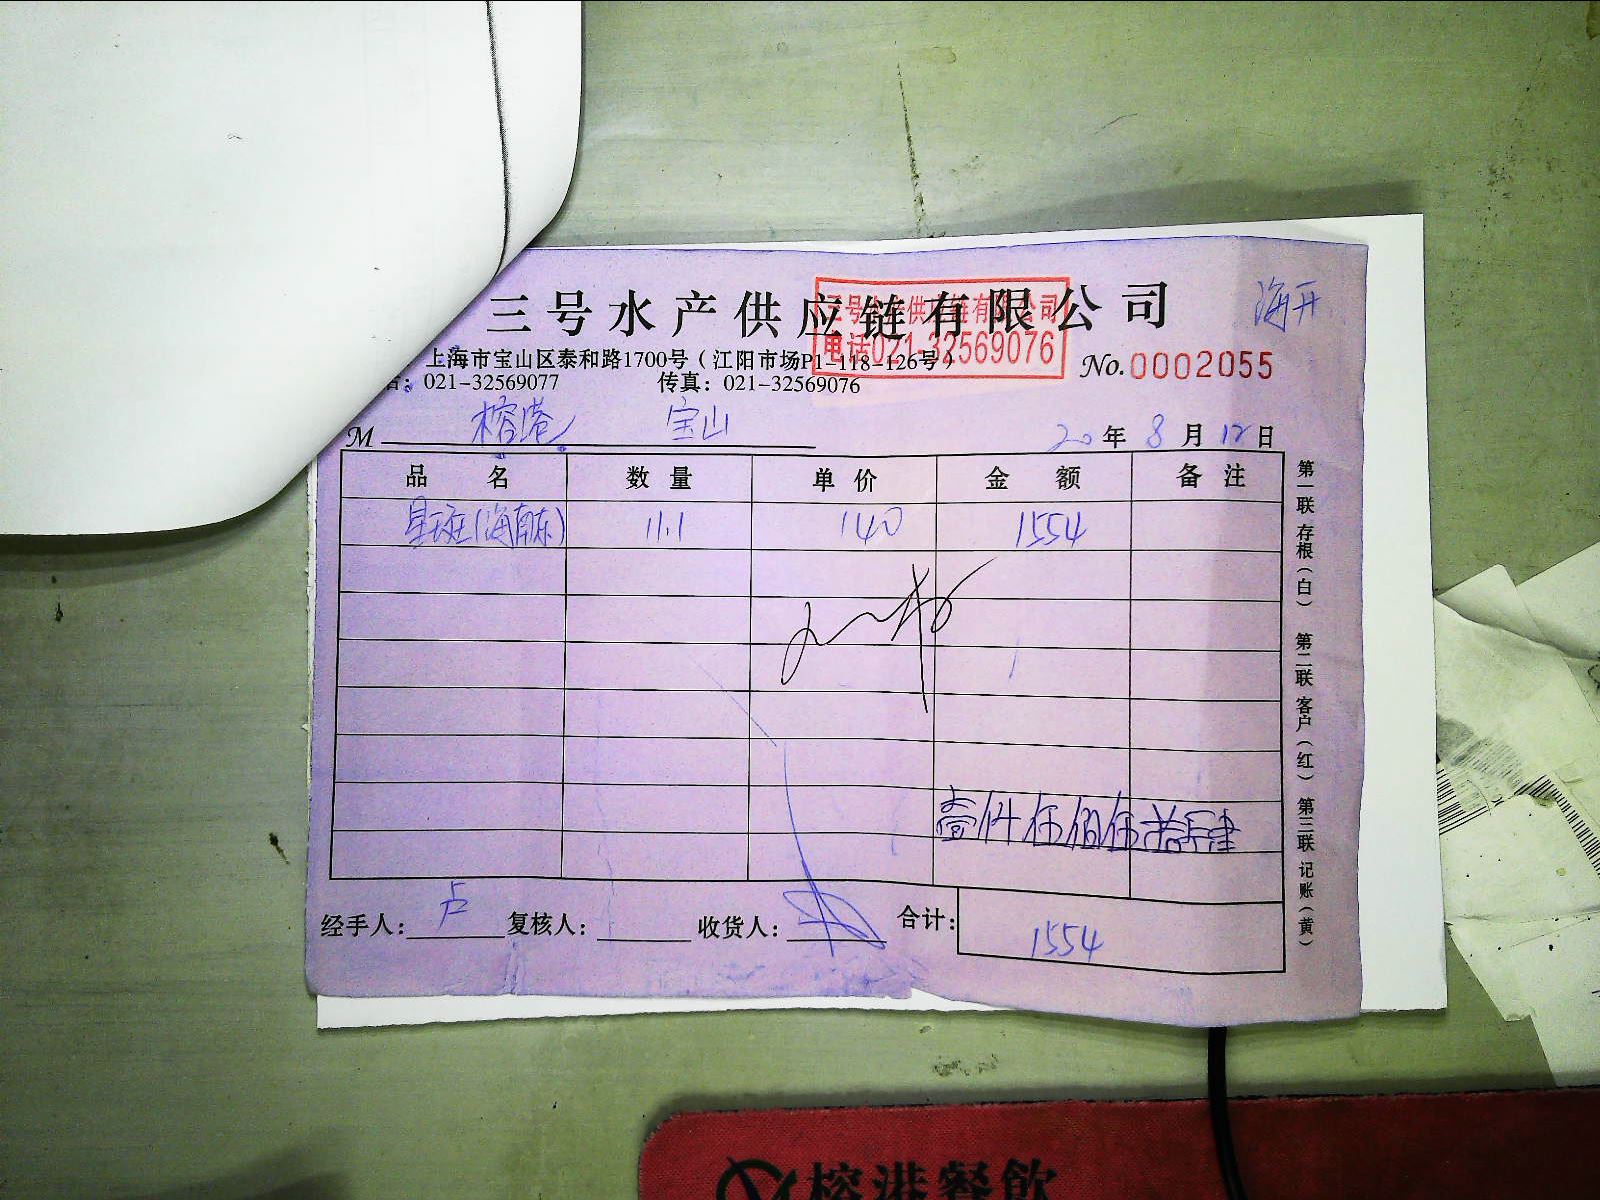 三号水产供应链有限公司
海开
三号水产供应链有限公司
电话021-32569076
上海市宝山区泰和路1700号（江阳市场P1-118-126号）
No.0002055
021-32569077 传真：021-32569076
M 榕港 宝山
20年8月12日
品名 数量 单价 金额 备注
星斑(海南东) 11.1 140 1554
壹仟伍佰伍拾肆
经手人：卢 复核人： 收货人： 合计：1554
第一联 存根（白） 第二联 客户（红） 第三联 记账（黄）
榕港餐飲